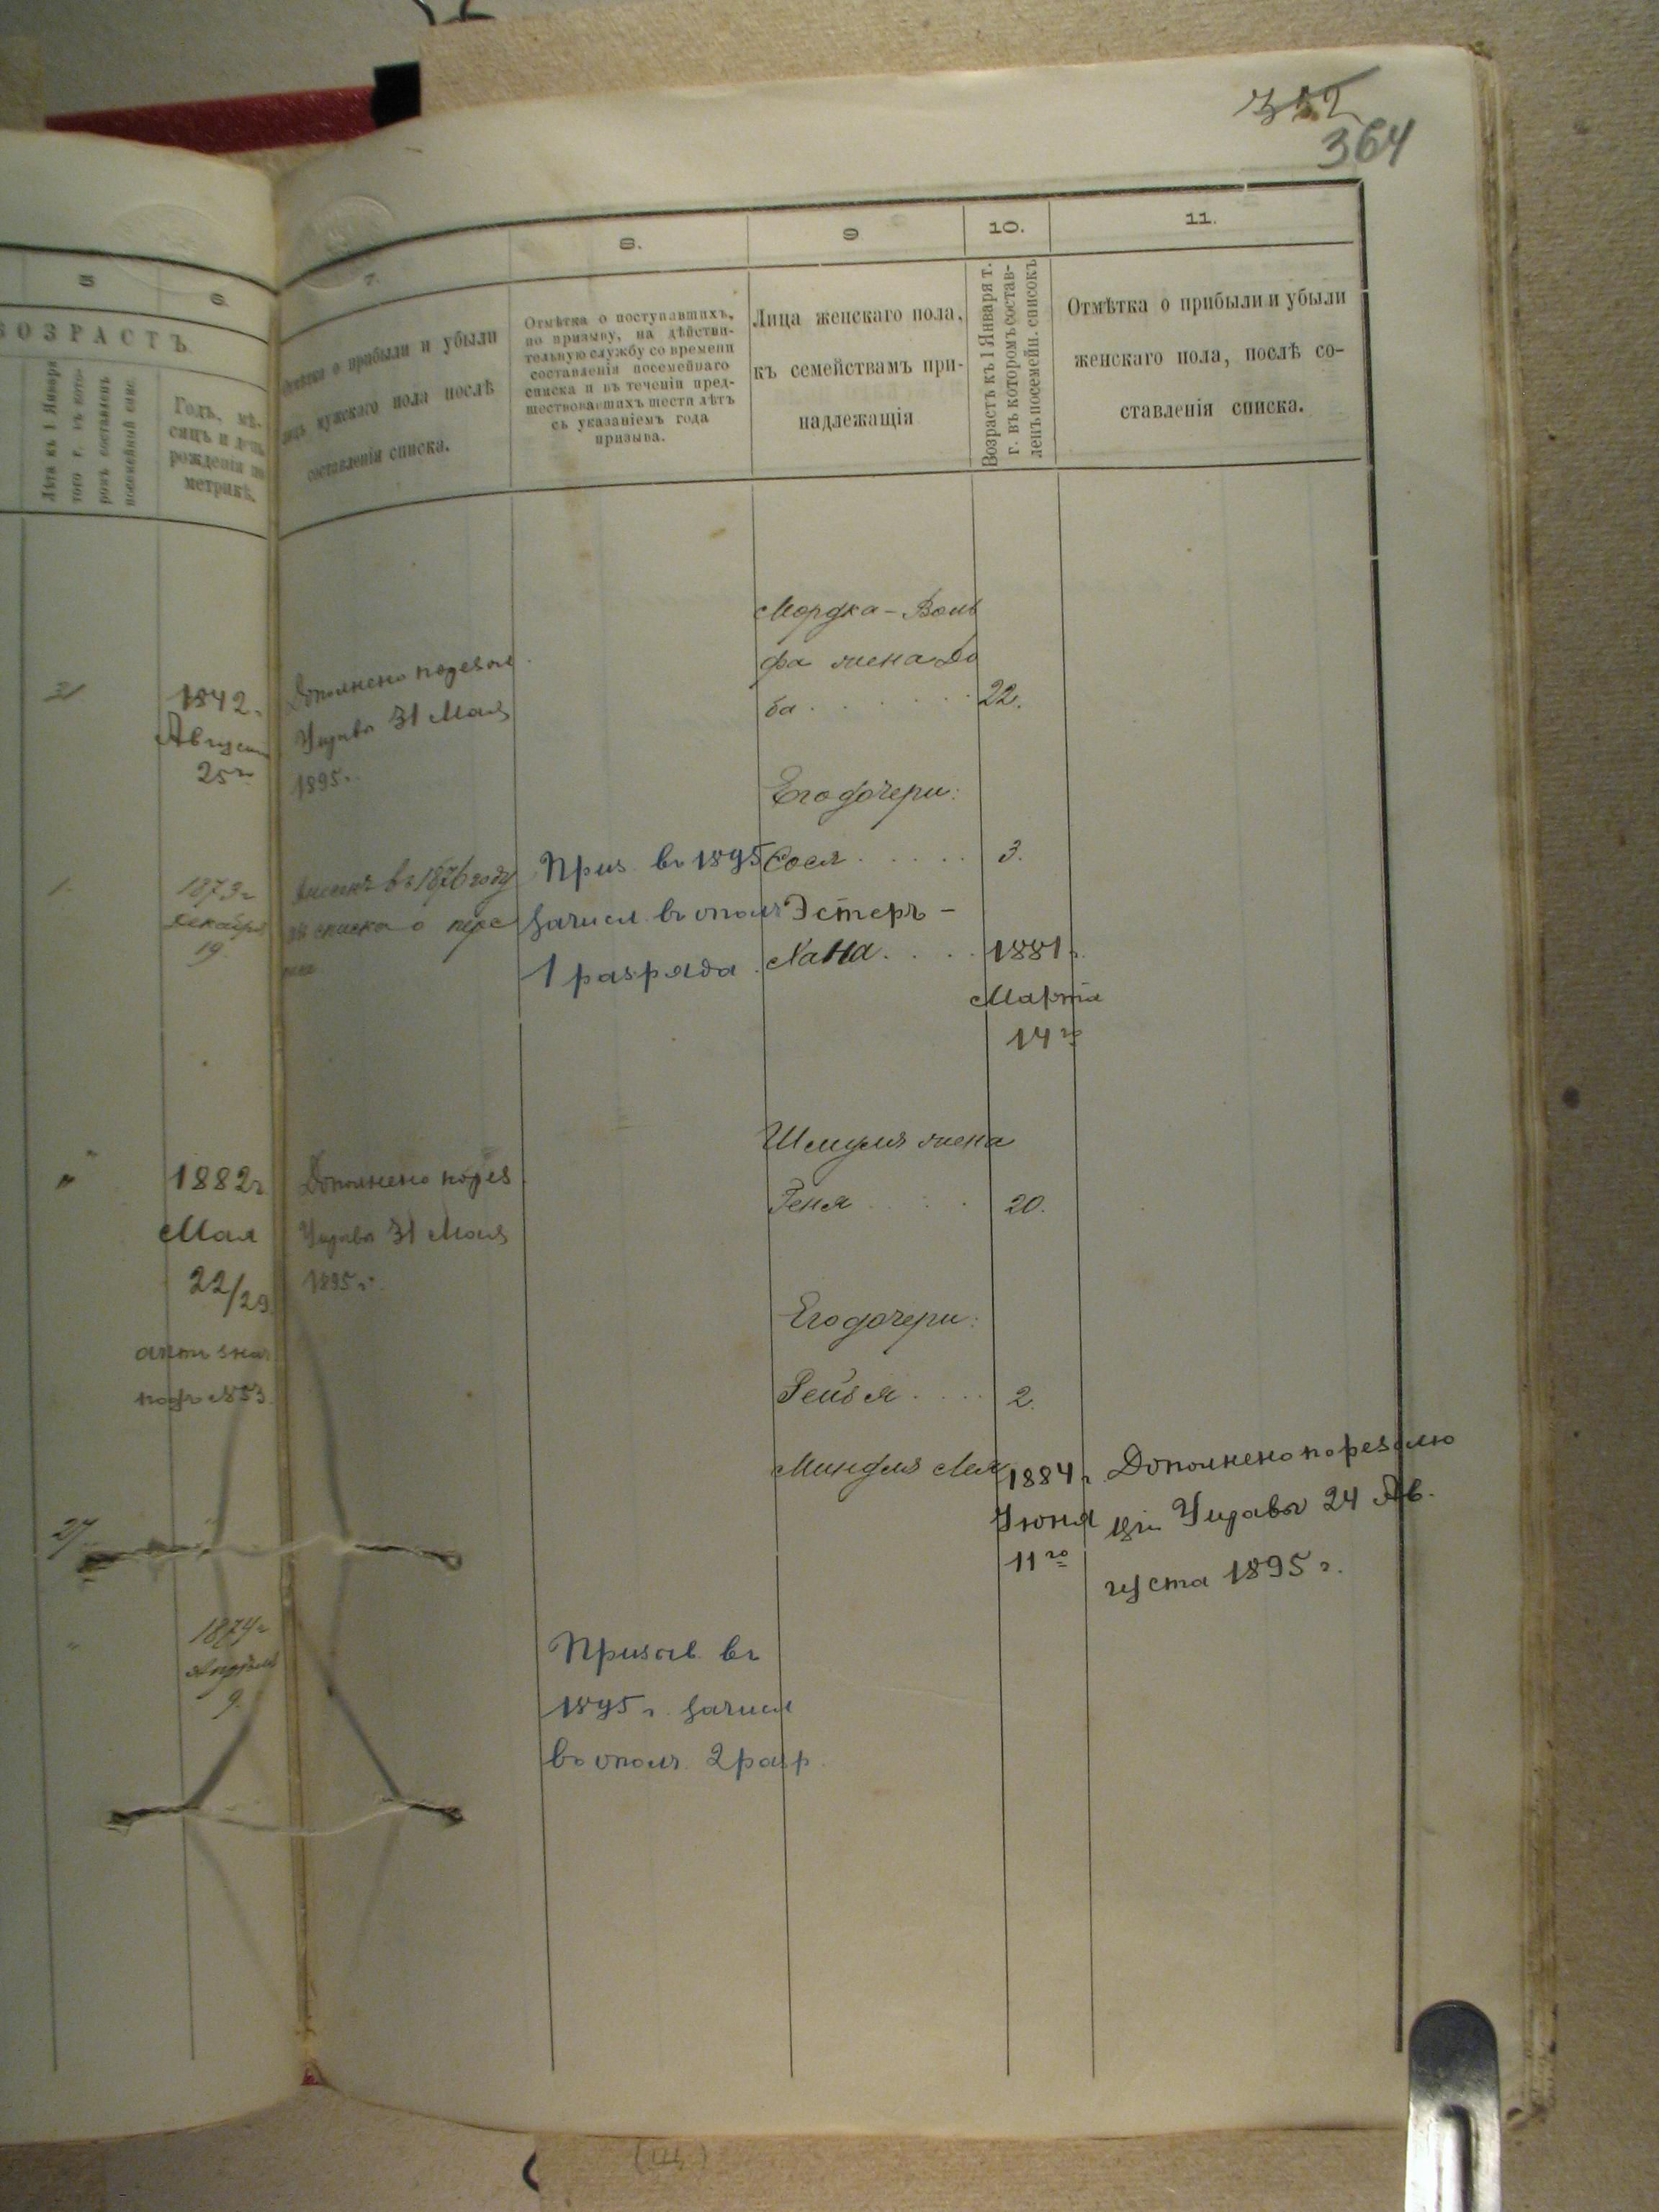 352
364
5
6.
7.
8.
9
10.
11.
ВОЗРАСТЪ
Лѣта къ 1 Января
того г. въ кото-
ромъ составленъ
посемейный спис.
Годъ, мѣ-
сяцъ и день
рожденія по
метрикѣ.
Отмѣтка о прибыли и убыли
лицъ мужскаго пола послѣ
составленія списка.
Отмѣтка о поступавшихъ,
по призыву, на дѣйстви-
тельную службу со времени
составленія посемейнаго
списка и въ теченіи пред-
шествовавшихъ шести лѣтъ
съ указаніемъ года
призыва.
Лица женскаго пола,
къ семействамъ при-
надлежащія
Возрастъ къ 1 Января т.
г. въ которомъ состав-
ленъ посемейн. списокъ
Отмѣтка о прибыли и убыли
женскаго пола, послѣ со-
ставленія списка.
1842.
Август
25го
Дополнено по резол
Управы 31 Мая
1895г.
Мордка-Воль
фа жена До
ба 22.
Его дочери:
1.
1873г
Декабря
19.
въ 1876 году
изъ списка о пере
Приз. въ 1895
зачисл. въ ополч
1 разряда.
Сося 3.
Эстеръ-
Хана 1881г.
Марта
14го
Шмуля жена
Геня 20.
"
1882г
Мая
22/29
актъ знач
подъ №53.
Дополнено по рез
Управы 31 Мая
1895г.
Его дочери:
Рейзя 2.
Миндля Лея 1884г
Іюня
11го
Дополнено по резолю
ціи Управы 24 Ав.
густа 1895г.
27
"
1874г
Апрѣля
9.
Призыв. въ
1895г. зачисл
въ ополч. 2 разр.